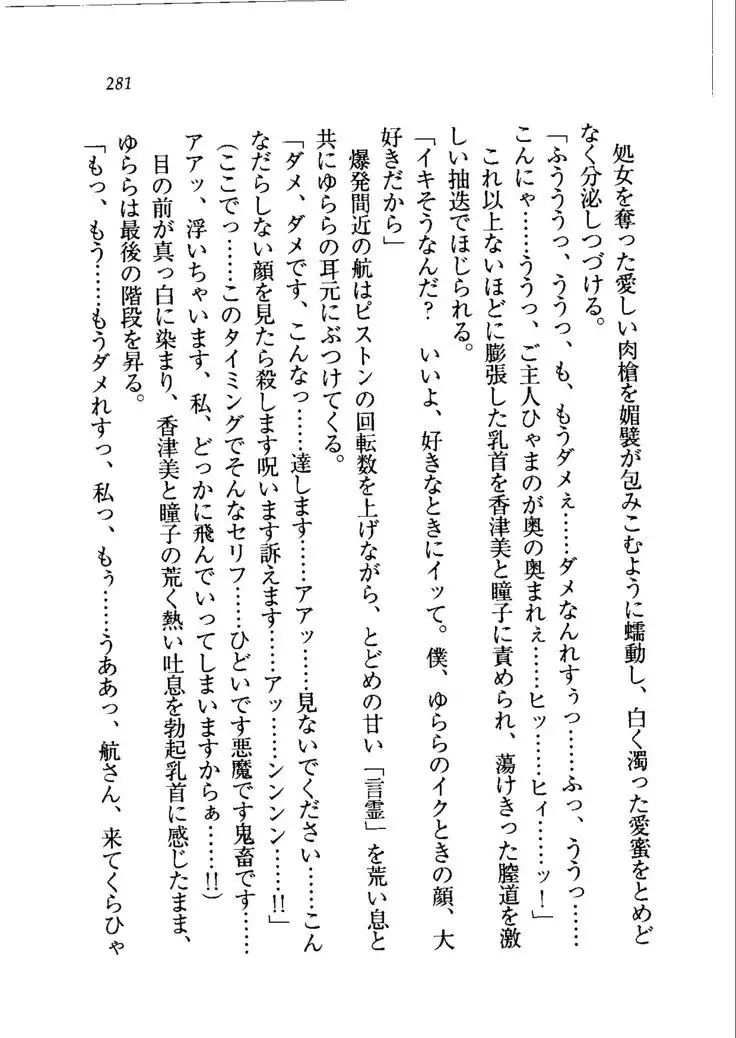 281
処女を奪った愛しい肉槍を媚襞が包みこむように蠕動し、白く濁った愛蜜をとめど
なく分泌しつづける。
「ふううぅっ、ううっ、も、もうダメぇ……ダメなんれすぅっ……ふっ、ううっ……
こんにゃ……ううっ、ご主人ひゃまのが奥の奥まれぇ……ヒッ……ヒィ……ッ！」
これ以上ないほどに膨張した乳首を香津美と瞳子に責められ、蕩けきった膣道を激
しい抽送でほじられる。
「イキそうなんだ？　いいよ、好きなときにイッて。僕、ゆららのイクときの顔、大
好きだから」
爆発間近の航はピストンの回転数を上げながら、とどめの甘い「言霊」を荒い息と
共にゆららの耳元にぶつけてくる。
「ダメ、ダメです、こんなっ……達します……アアッ……見ないでください……こん
なだらしない顔を見たら殺します呪います訴えます……アッ……ンンンン……!!」
（ここでっ……このタイミングでそんなセリフ……ひどいです悪魔です鬼畜です……
アアッ、浮いちゃいます、私、どっかに飛んでいってしまいますからぁ……!!）
目の前が真っ白に染まり、香津美と瞳子の荒く熱い吐息を勃起乳首に感じたまま、
ゆららは最後の階段を昇る。
「もっ、もう……もうダメれすっ、私っ、もぅ……うああっ、航さん、来てくらひゃ